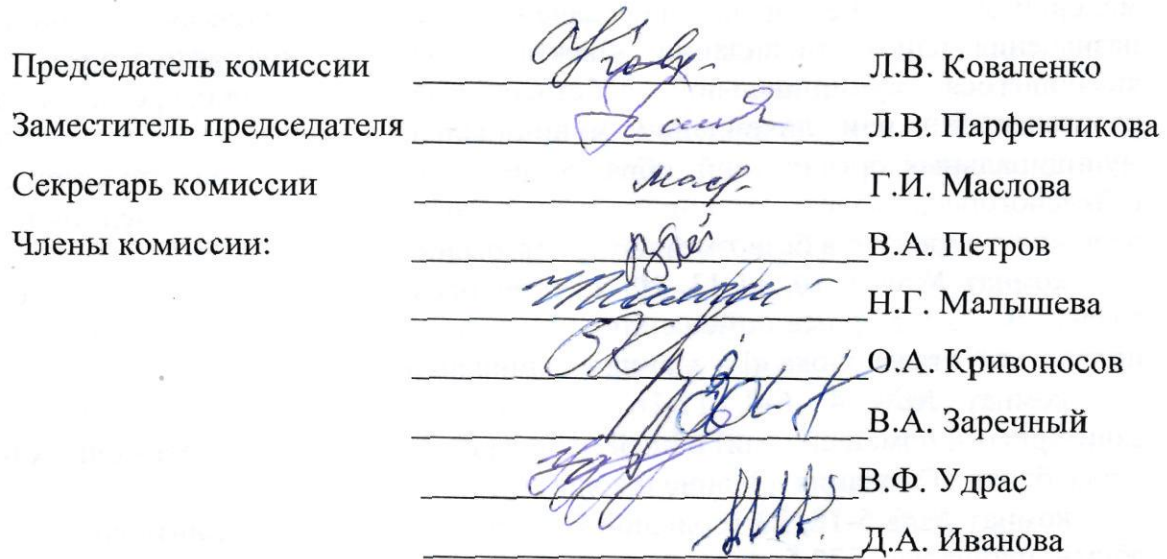 Председатель комиссии Л.В. Коваленко
Заместитель председателя Л.В. Парфенчикова
Секретарь комиссии Г.И. Маслова
Члены комиссии: В.А. Петров
Н.Г. Малышева
О.А. Кривоносов
В.А. Заречный
В.Ф. Удрас
Д.А. Иванова